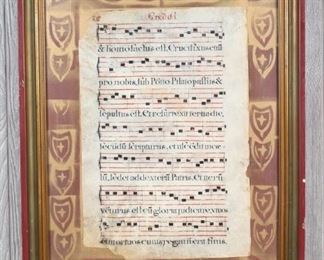 Credo I
& homo factus est. Crucifixus eti
pro nobis, sub Põtio Pilato passus &
sepultus est. Et resurrexit tertia die,
secũdũ scripturas, et ascẽdit in cæ
lũ, sedet ad dexterã Patris. Et iterũ
venturus est cũ gloria judicare vivos
et mortuos cuius regni nõ erit finis,